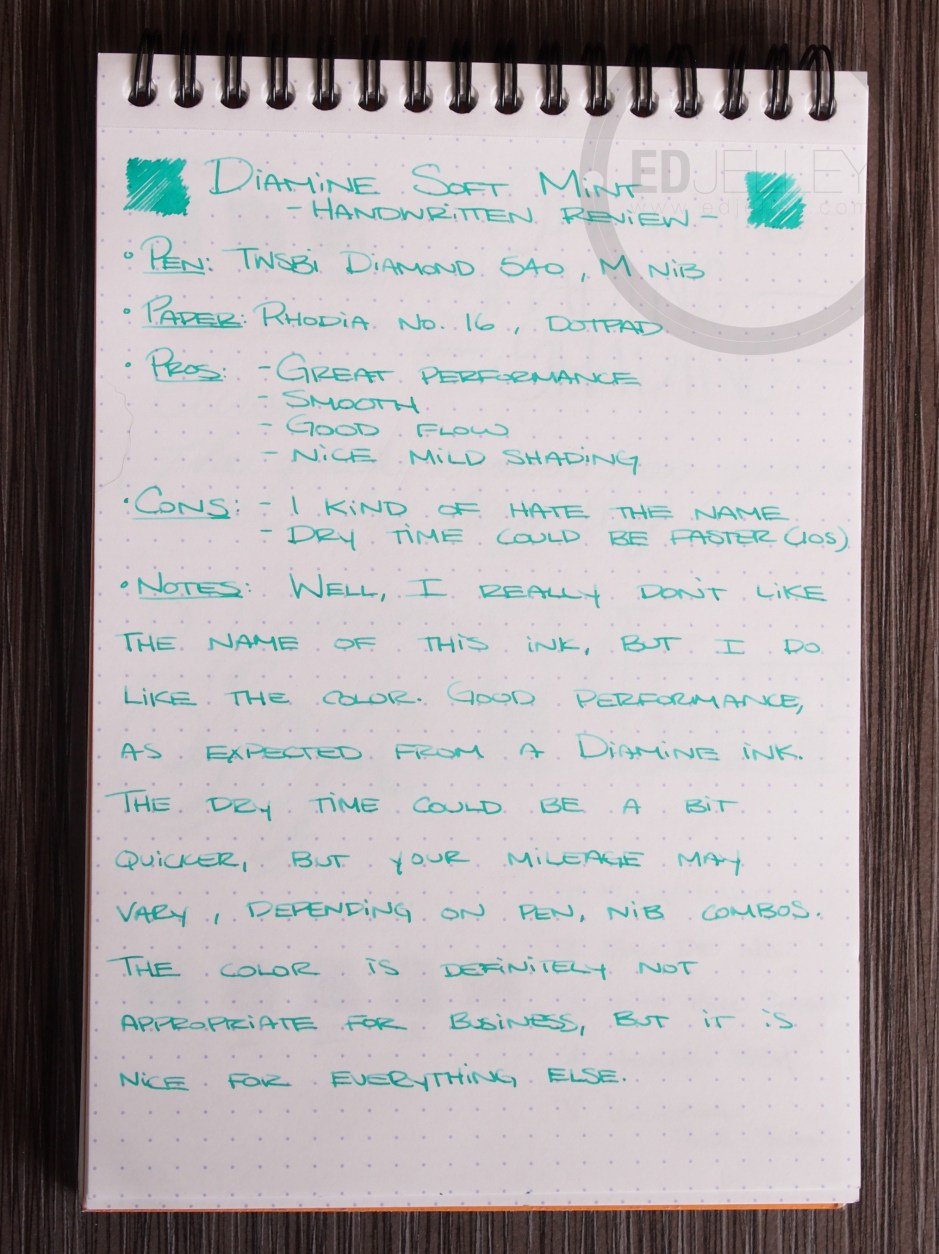 DIAMINE SOFT MINT
- HANDWRITTEN REVIEW -
EDJELLEY
• PEN: TWSBI DIAMOND 540, M NIB
• PAPER: RHODIA NO. 16, DOTPAD
• PROS: - GREAT PERFORMANCE
- SMOOTH
- GOOD FLOW
- NICE MILD SHADING
• CONS: - I KIND OF HATE THE NAME
- DRY TIME COULD BE FASTER (10S)
• NOTES: WELL, I REALLY DON'T LIKE
THE NAME OF THIS INK, BUT I DO
LIKE THE COLOR. GOOD PERFORMANCE,
AS EXPECTED FROM A DIAMINE INK.
THE DRY TIME COULD BE A BIT
QUICKER, BUT YOUR MILEAGE MAY
VARY, DEPENDING ON PEN, NIB COMBOS.
THE COLOR IS DEFINITELY NOT
APPROPRIATE FOR BUSINESS, BUT IT IS
NICE FOR EVERYTHING ELSE.